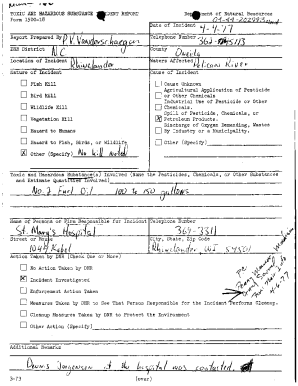 TOXIC AND HAZARDOUS SUBSTANCE INCIDENT REPORT
Form 3200-18
Department of Natural Resources
Date of Incident
4-4-77
Report Prepared By
Telephone Number
362-
DNR District
N.C.
County
Oneida
Location of Incident
Rhinelander
Waters Affected
Pelican River
Nature of Incident
Cause of Incident
Fish Kill
Bird Kill
Wildlife Kill
Vegetation Kill
Hazard to Humans
Hazard to Fish, Birds, or Wildlife
Other (Specify) No kill noted
Cause Unknown
Agricultural Application of Pesticide
or Other Chemicals
Industrial Use of Pesticide or Other
Chemicals.
Spill of Pesticide, Chemicals, or
Petroleum Products.
Discharge of Oxygen Demanding Wastes
By Industry or a Municipality.
Other (Specify)
Toxic and Hazardous Substance(s) Involved (Name the Pesticides, Chemicals, or Other Substances
and Estimate Quantities Involved)
No. 2 Fuel Oil 100 to 150 gallons
Name of Persons or Firm Responsible for Incident
Telephone Number
St. Mary's Hospital
Street or Route
City, State, Zip Code
1044 Kabel
Rhinelander WI 54501
Action Taken By DNR (Check One or More)
No Action Taken By DNR
Incident Investigated
Enforcement Action Taken
Measures Taken by DNR to See That Person Responsible for the Incident Performs Cleanup.
Cleanup Measures Taken by DNR to Protect the Environment
Other Action (Specify)
Additional Remarks
Dennis Jorgensen at the hospital was contacted.
3-73
(over)